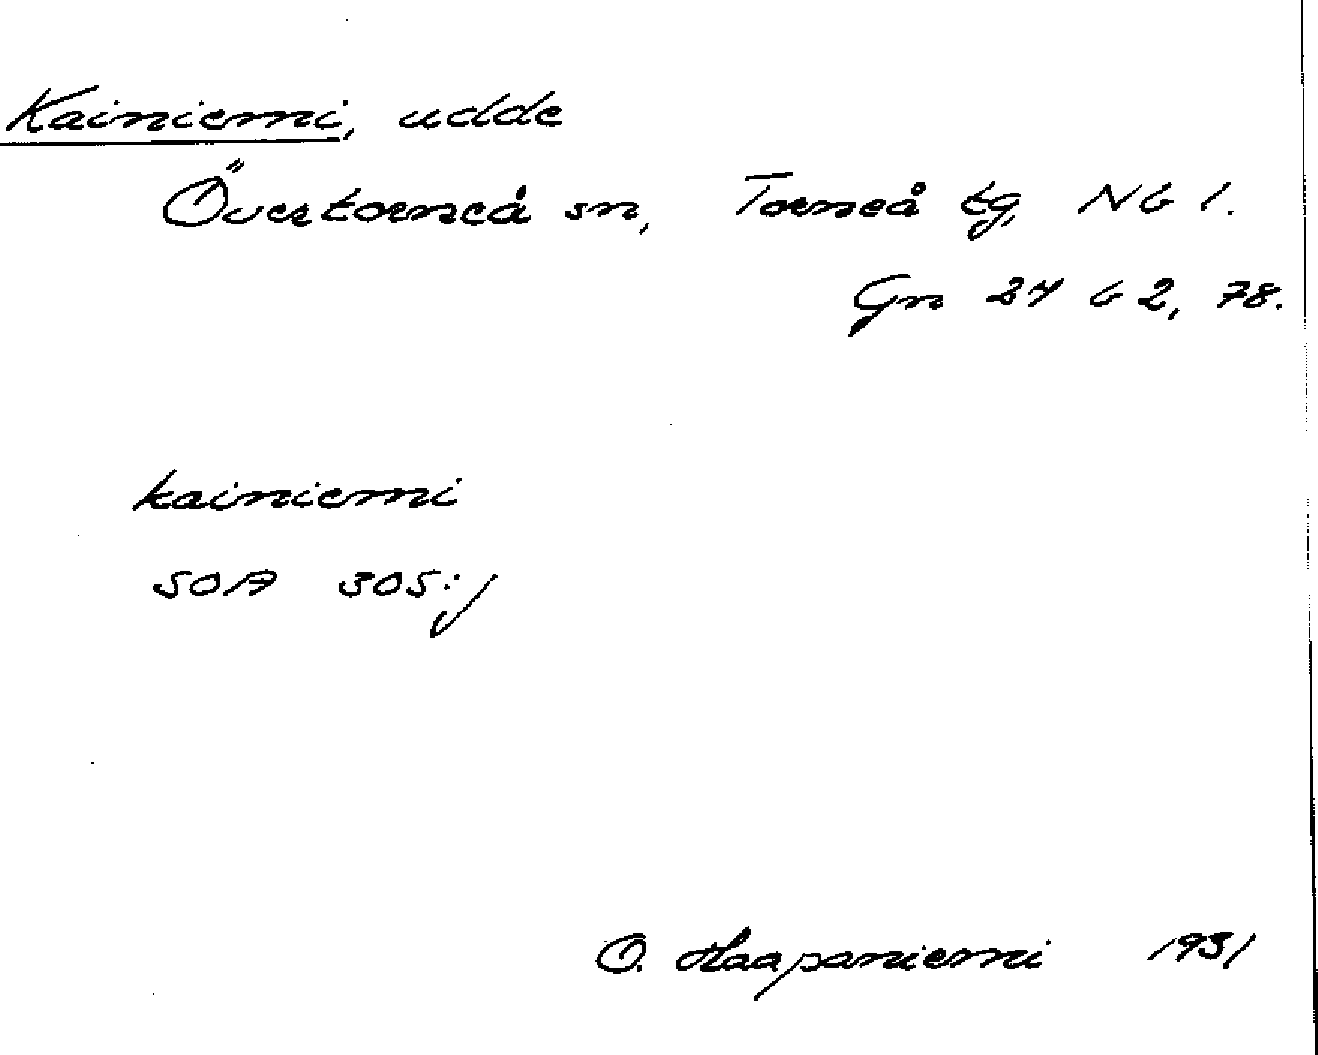 Kainiemi, udde
Övertorneå sn, Torneå tg Nb l.
Gn 27 b 2, 78.
kainiemi
SOA 305:j
O. Haapaniemi 1931